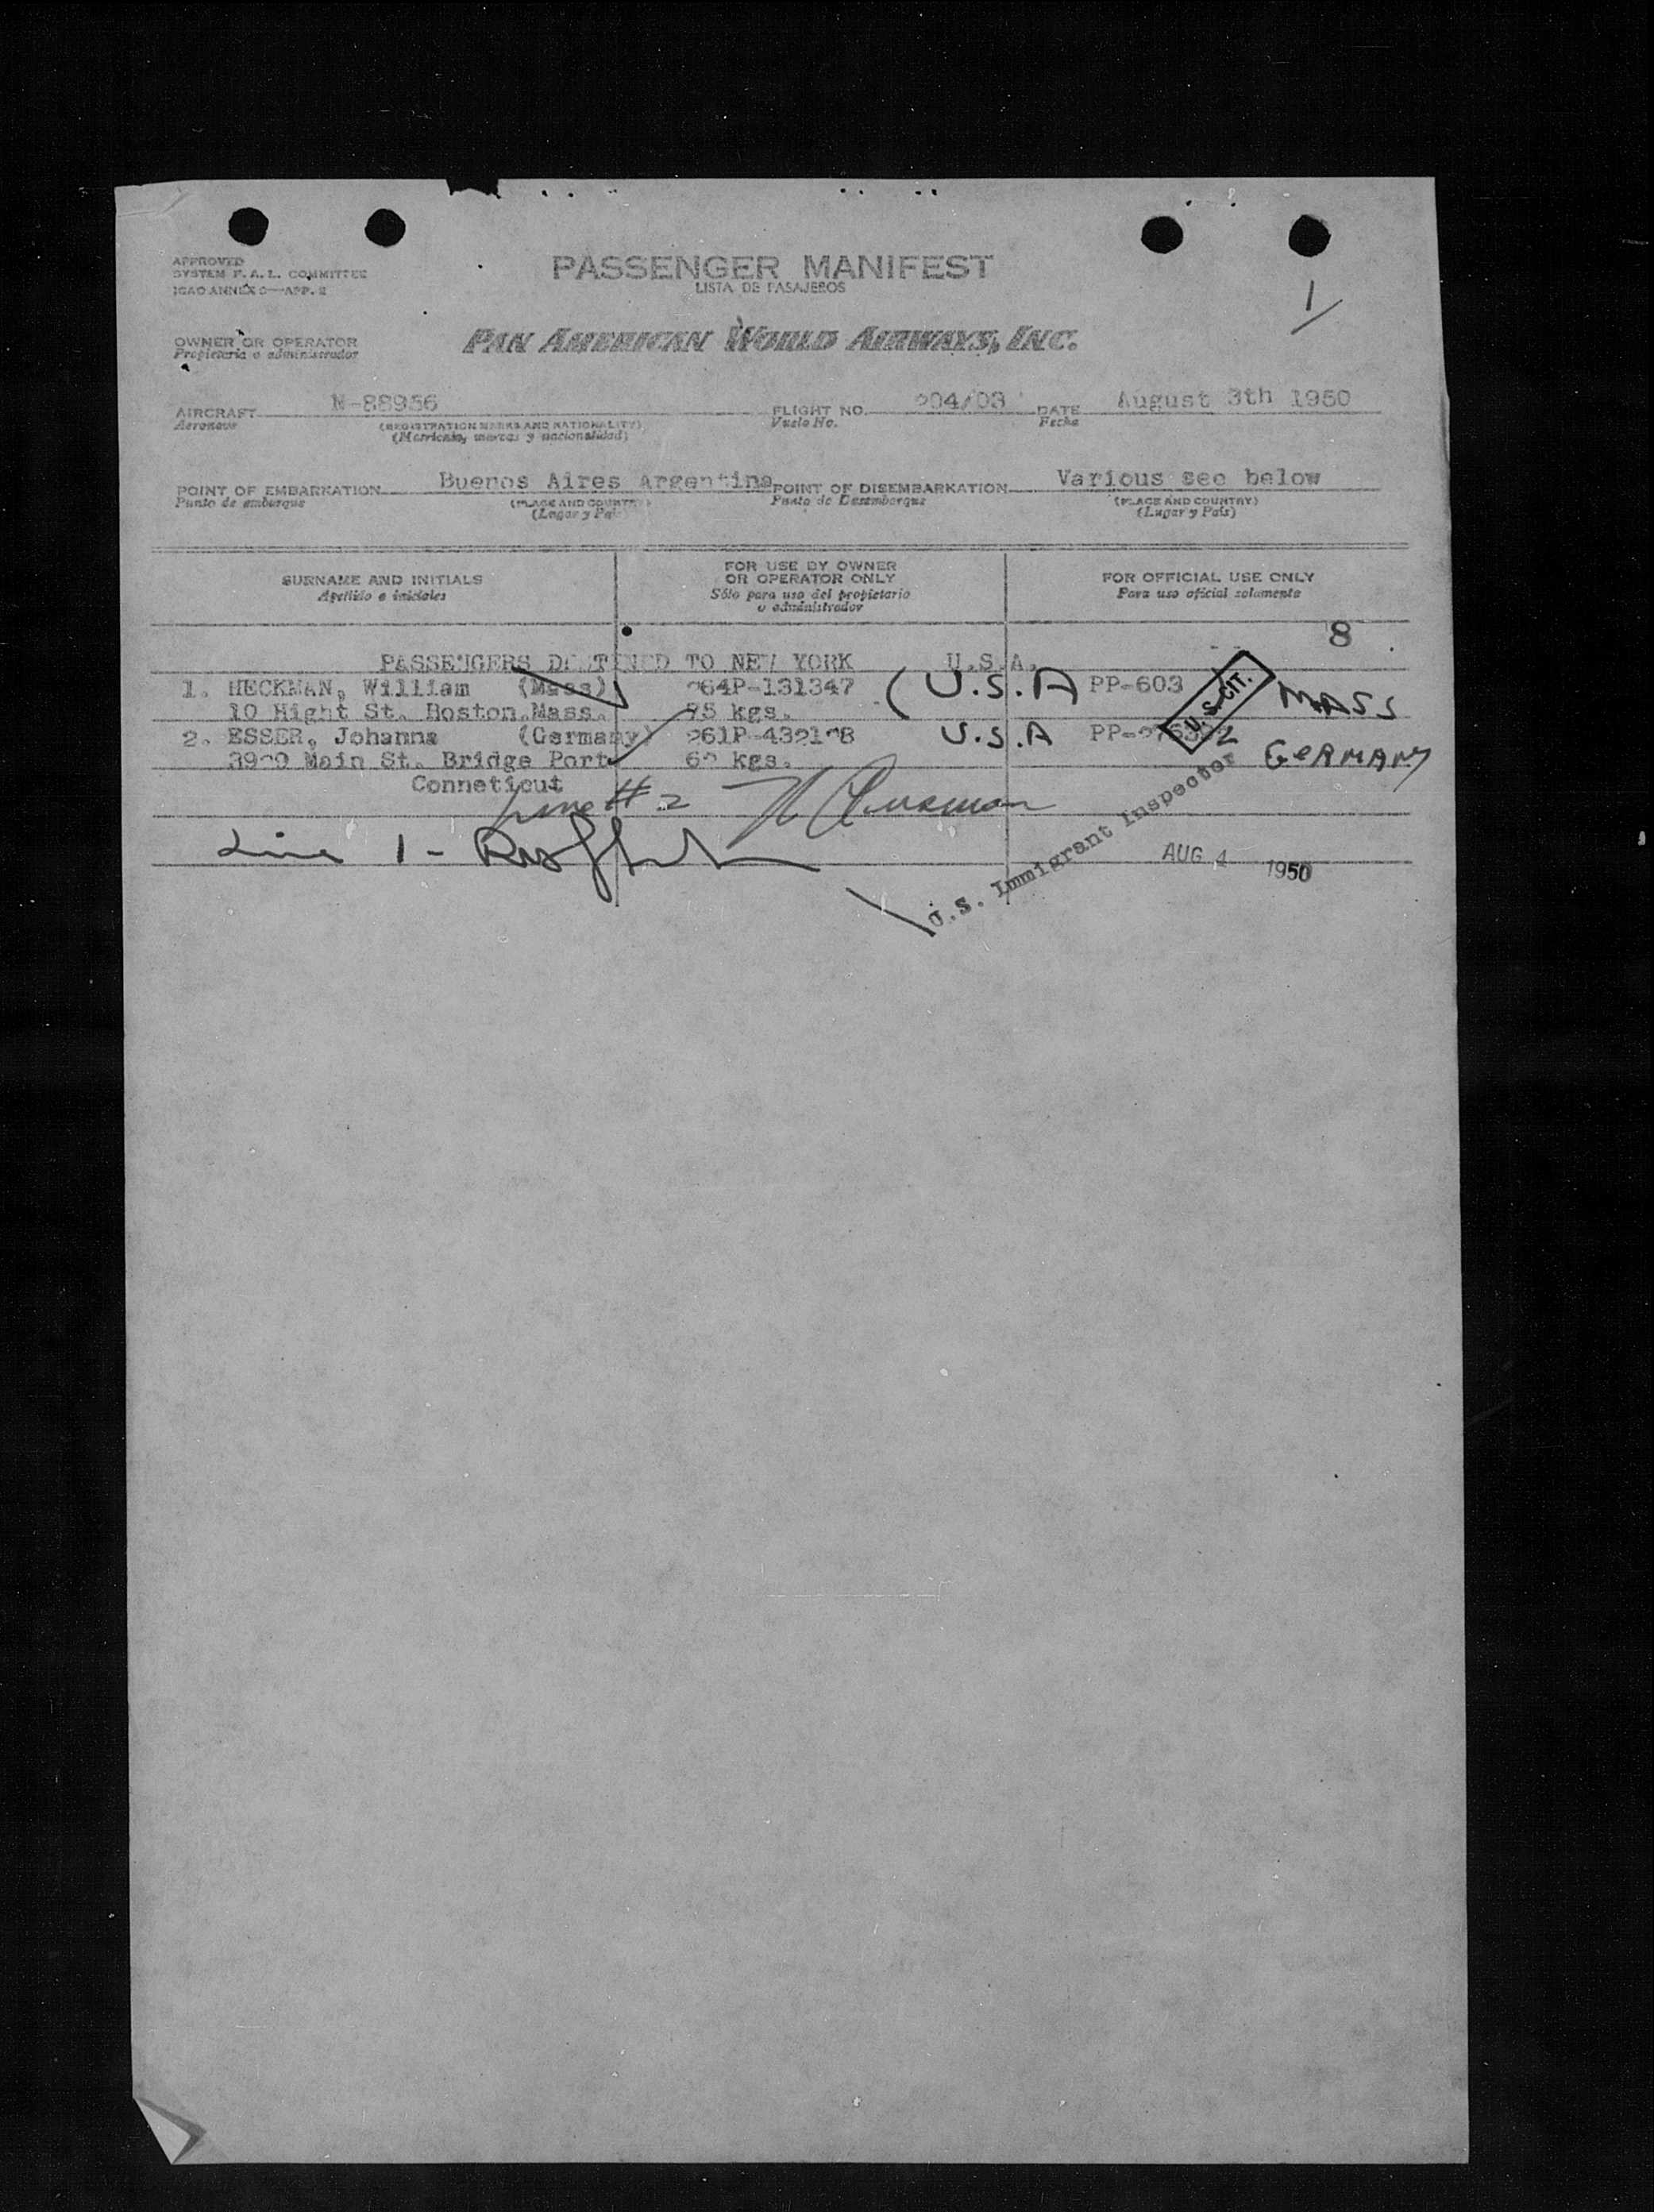 APPROVED
SYSTEM F. A. L. COMMITTEE
ICAO ANNEX 9—APP. 2
PASSENGER MANIFEST
LISTA DE PASAJEROS
1/
OWNER OR OPERATOR
Propietario o administrador
PAN AMERICAN WORLD AIRWAYS, INC.
AIRCRAFT N-88956 FLIGHT NO. 204/03 DATE August 3th 1950
Aeronave (REGISTRATION MARKS AND NATIONALITY) Vuelo No. Fecha
(Matricula, marcas y nacionalidad)
POINT OF EMBARKATION Buenos Aires Argentina POINT OF DISEMBARKATION Various see below
Punto de embarque (PLACE AND COUNTRY) Punto de Desembarque (PLACE AND COUNTRY)
(Lugar y País) (Lugar y País)
SURNAME AND INITIALS
Apellido e iniciales
FOR USE BY OWNER
OR OPERATOR ONLY
Sólo para uso del propietario
o administrador
FOR OFFICIAL USE ONLY
Para uso oficial solamente
8
PASSENGERS DESTINED TO NEW YORK U.S.A.
1. HECKMAN, William (Mass) 264P-131347 (U.S.A PP-603 U.S.CIT. MASS
10 Hight St. Boston.Mass. 75 kgs.
2. ESSER, Johanna (Germany) 261P-432128 U.S.A GERMANY
3920 Main St. Bridge Port 62 kgs.
Conneticut
Line #2
Line 1 -
U.S. Immigrant Inspector
AUG 4 1950